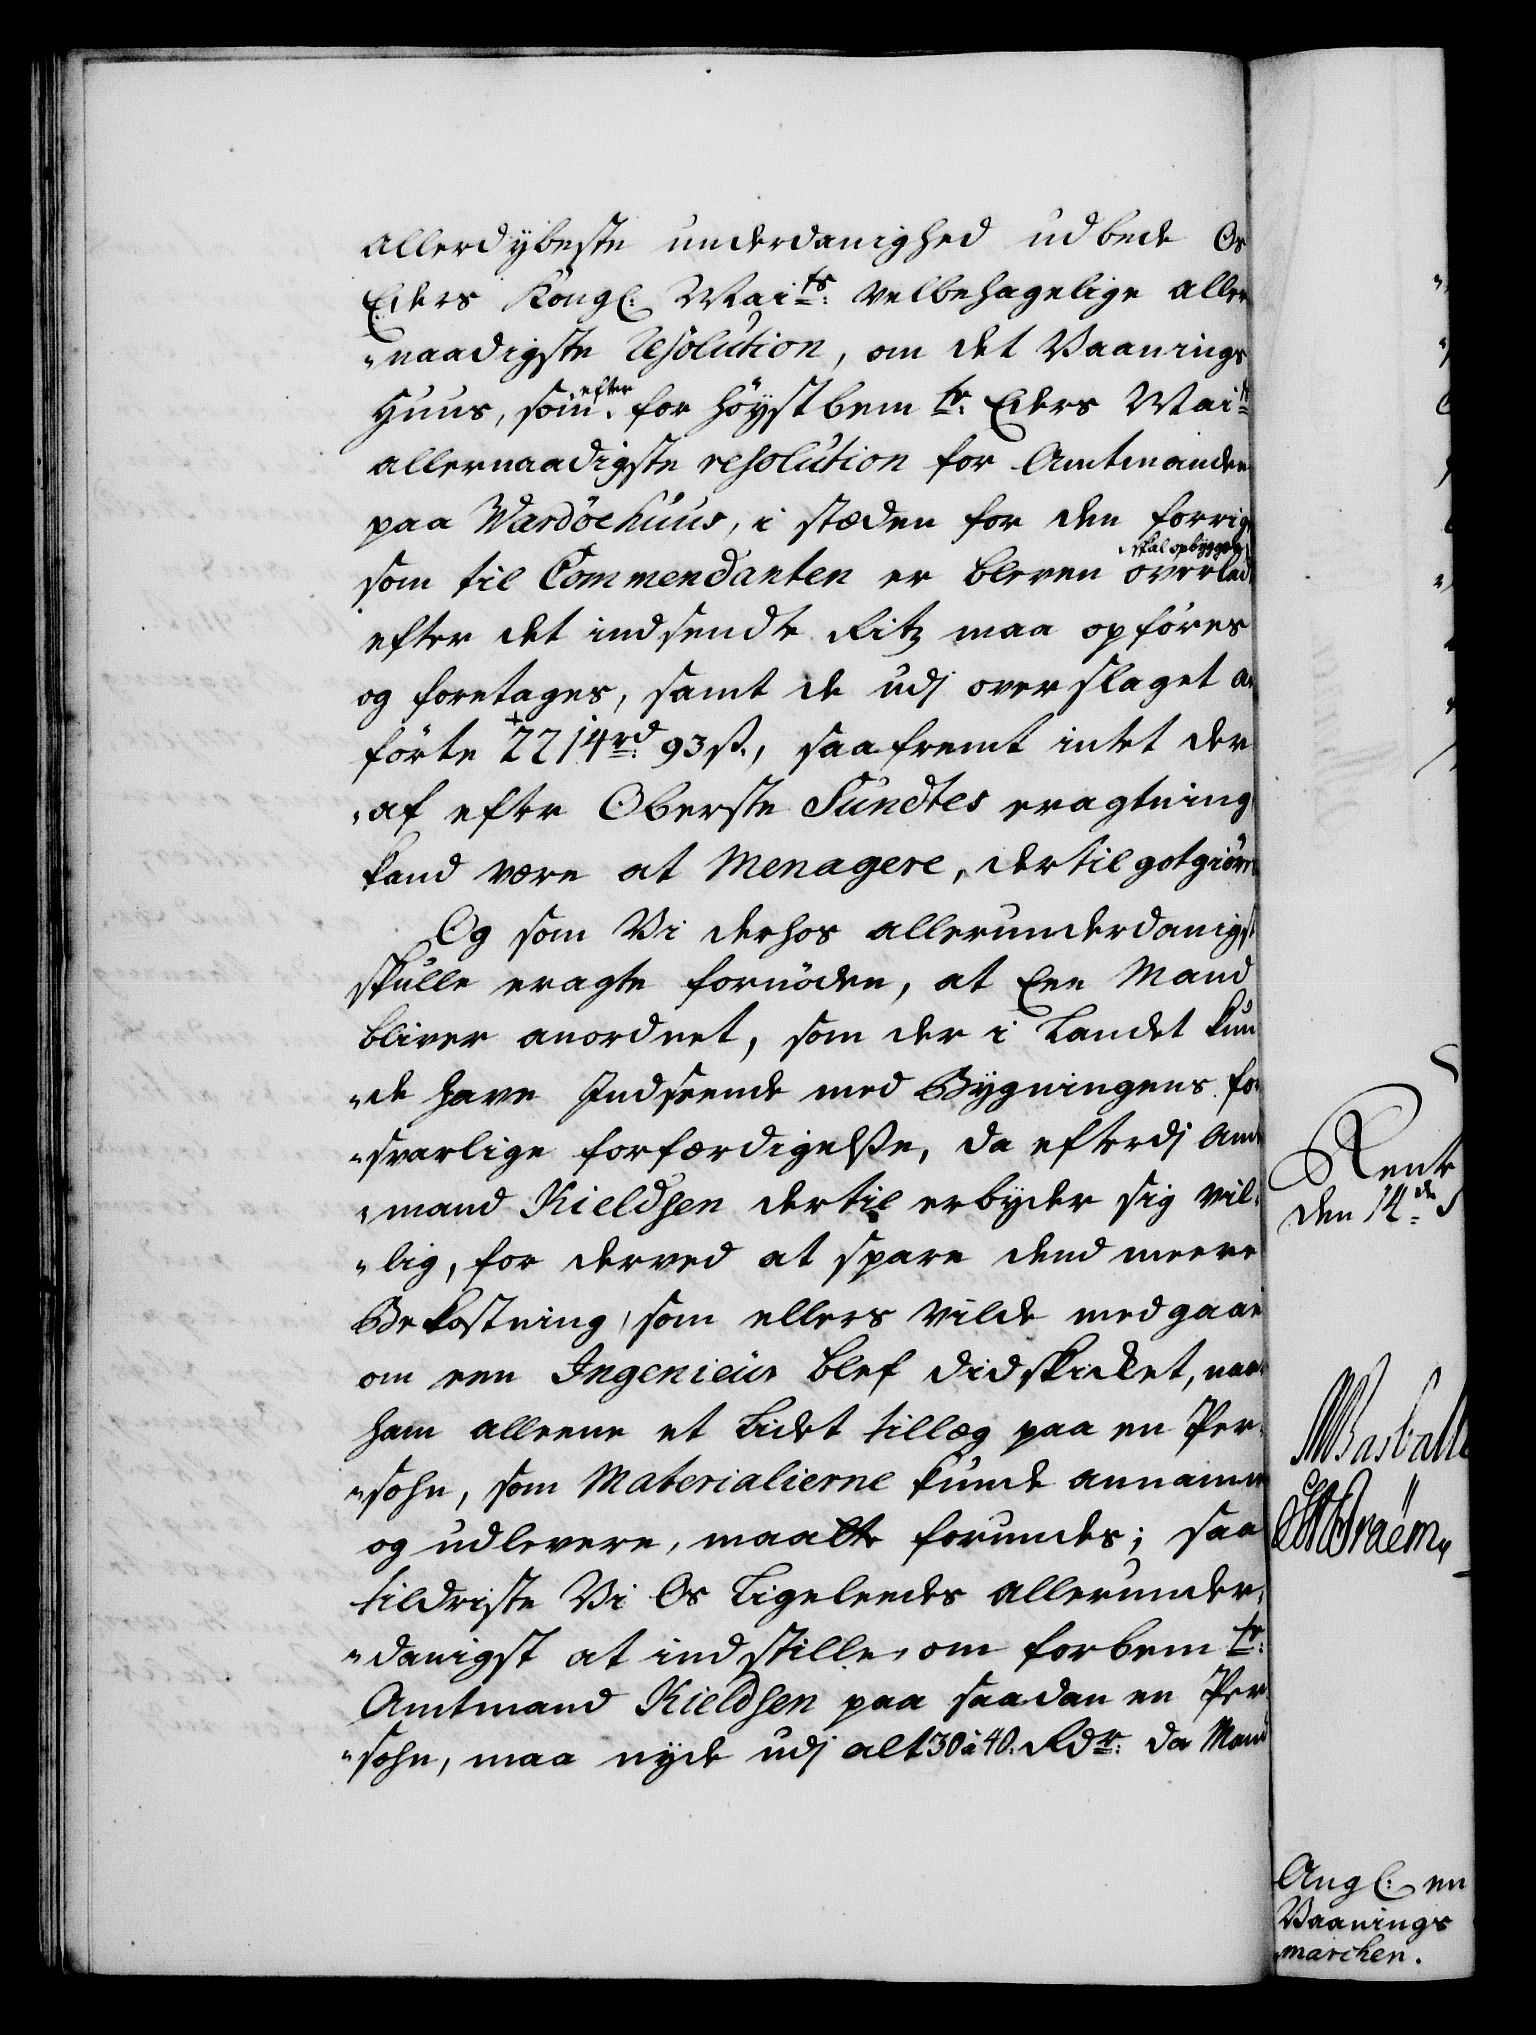 allerdÿbeste underdanighed udbede Os
Eders Kongl: Mai<u>ts</u>: velbehagelige aller
"naadigste resolution, om det Vaanings
Huus, som efter for höystbem<u>te</u>: Eders Mai<u>ts</u>
allernaadigste resolution for Amtmanden
paa Wardöehuus, i stæden for den forrige
skal opbÿgges
som til Commendanten er bleven overlad
efter det indsendte Ritz maa opföres
og foretages, samt de udj overslaget an
förte 2214 rd 93 s., saafremt intet der
"af efter Oberste Sundtes eragtning
kand være at Menagere, dertil gotgiöre
Og som Vi derhos allerunderdanigst
skulle eragte fornöden, at Een Mand
bliver anordnet, som der i Landet kun
"de have Indseende med Bÿgningens for
"svarlige forfærdigelse, da efterdj Amt
"mand Kieldsen dertil erbÿder sig vil
"lig, for derved at spare dend meere
Bekostning, som ellers vilde medgaae
om een Ingenieur blef didskicket, naar
ham alleene et lidet tillæg paa en Per
"sohn, som Materialierne kunde annamme
og udlevere, maatte forundes; saa
tildriste Vi Os ligeleedes allerunder
"danigst at indstille, om forbem<u>te</u>:
Amtmand Kieldsen paa saadan en Per
"sohn, maa nÿde udj alt 30 à 40. Rd<u>r</u>: da Mand
Rente
den 14<u>de</u> S
Ang<u>l</u>: en
Vaanings
marchen.